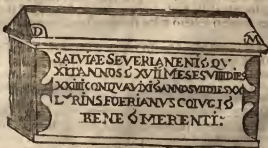 D M
SALVIAE SEVERIANENIS QV.
XIT ANNOS S XVII MESES VIIII DIES
XXIIII CON QVA VXIS ANNOS VII DIES XXI
L RINS FOERIANVS COIVGI S
BENE S MERENTI: